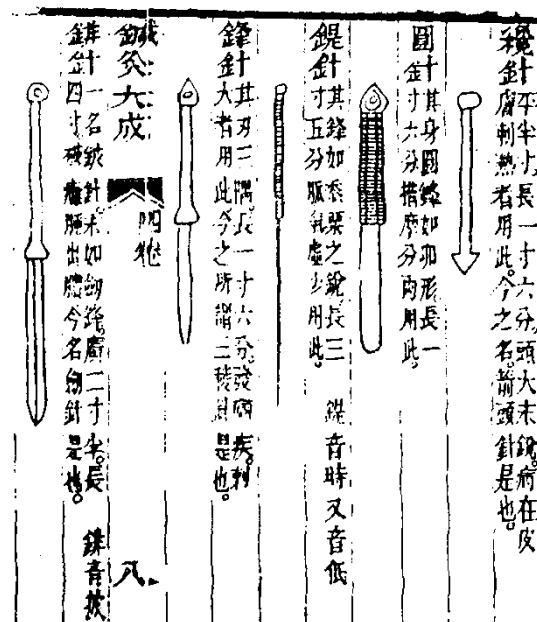 鑱針平半寸。長一寸六分。頭大末銳。病在皮
膚刺熱者用此。今之名箭頭針是也。
圓針其身圓鋒如卵形長一
寸六分揩摩分肉用此。
鍉針其鋒如黍粟之銳長三
寸五分脈氣虛少用此。 鍉音時又音低
鋒針其刃三隅。長一寸六分。發痼疾。刺
大者用此今之所謂三稜針是也。
鍼灸大成 四卷 八
鈹針一名鈹針。末如劒鋒。廣二寸半。長
四寸破癰腫出膿今名劒針是也。 鈹音披